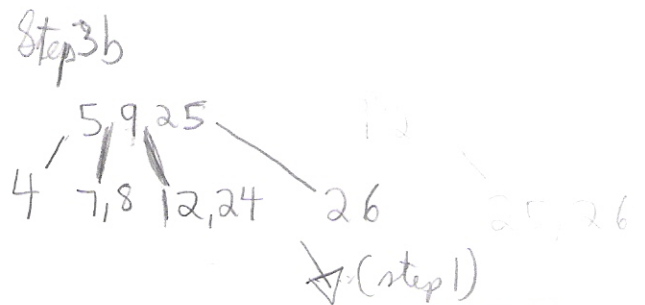 Step3b
5,9,25
4 7,8 12,24 26
(step1)